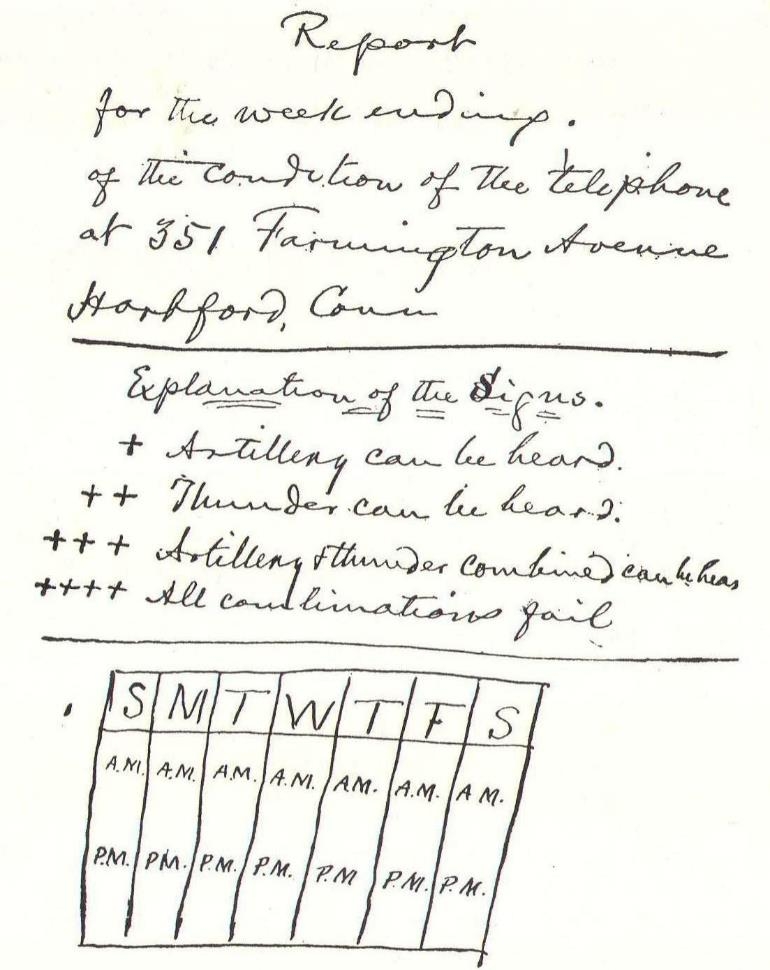 Report
for the week ending.
of the condition of the telephone
at 351 Farmington Avenue
Hartford, Conn
Explanation of the Signs.
+ Artillery can be heard.
++ Thunder can be heard.
+++ Artillery & thunder combined can be hear
++++ All combinations fail
S M T W T F S
A.M. A.M. A.M. A.M. A.M. A.M. A.M.
P.M. P.M. P.M. P.M. P.M P.M. P.M.